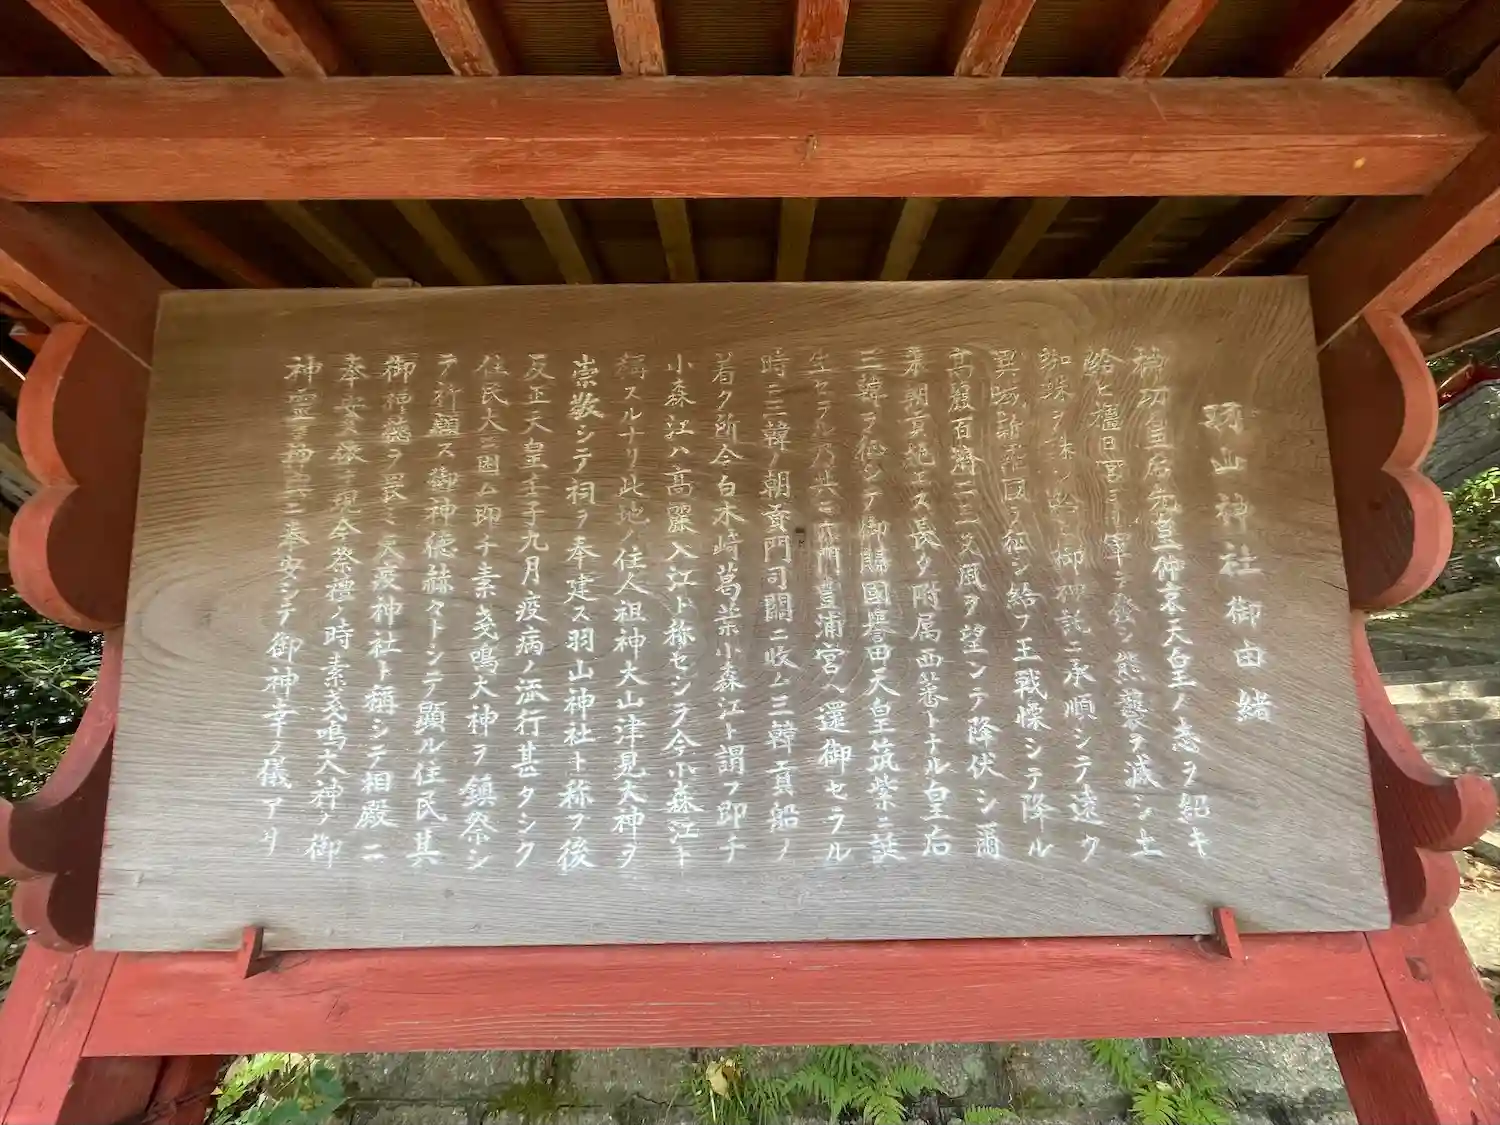 羽山神社御由緒
神功皇后先皇仲哀天皇ノ志ヲ紹キ
給ヒ橿日宮ヨリ軍ヲ発シ熊襲ヲ滅シ土
蜘蛛ヲ誅シ給ヒ御神託ニ承順シテ遠ク
異域新羅国ヲ征シ給フ王戦慄シテ降ル
高麗百済ニ三又風ヲ望ンテ降伏シ爾
来朝貢絶エス長ク附属西蕃トナル皇后
三韓ヲ征シテ御賜國譽田天皇筑紫ニ誕
生セラル乃共ニ穴門豊浦宮ヘ還御セラル
時ニ三韓ノ朝貢門司關ニ收ム三韓貢船ノ
着ク所今白木崎葛葉小森江ト謂フ即チ
小森江ハ高麗入江ト称セシヲ今小森江ト
稱スルナリ此地ノ住人祖神大山津見大神ヲ
崇敬シテ祠ヲ奉建ス羽山神社ト称フ後
反正天皇壬子九月疫病ノ流行甚タシク
住民大ニ困ム即チ素戔鳴大神ヲ鎮祭シ
テ祈願ス御神徳赫々トシテ顯ル住民其
御神徳ヲ畏ミ大疫神社ト稱シテ相殿ニ
奉安ス依テ現今祭禮ノ時素戔鳴大神ノ御
神霊ヲ神輿ニ奉安シテ御神幸ノ儀アリ